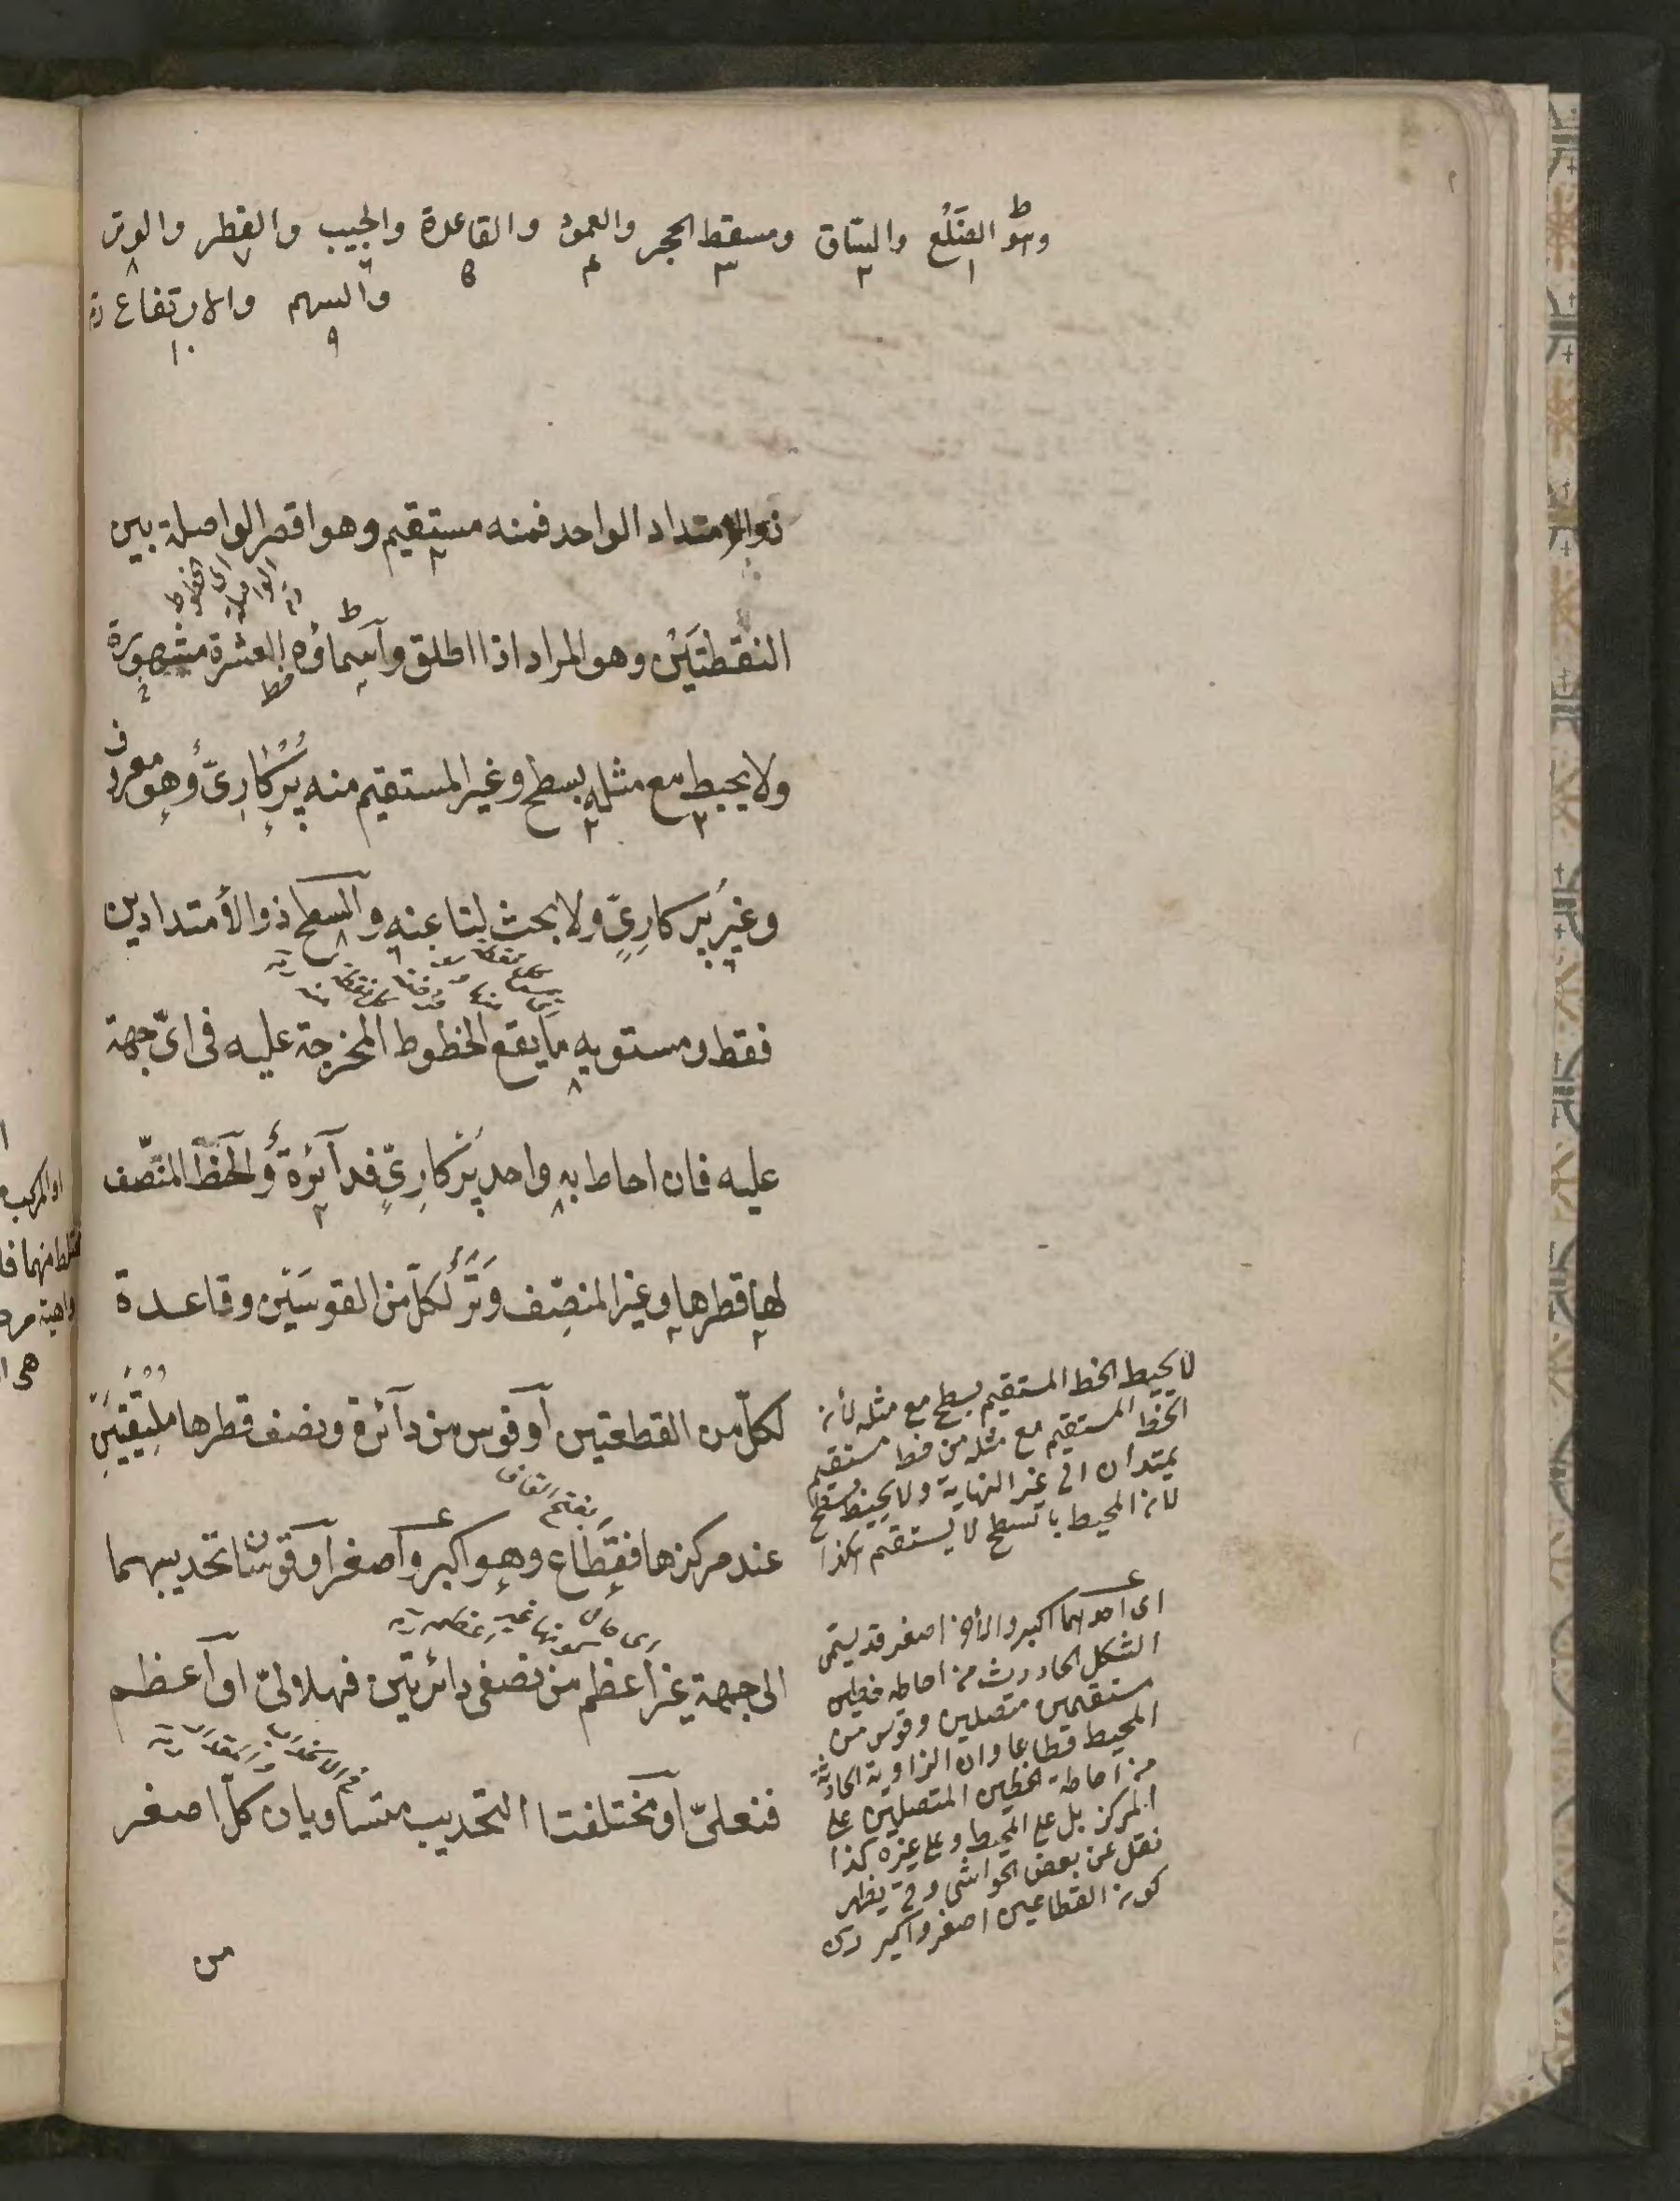 وهو الضلع والساق ومسقط الحجر والعمود والقاعدة والجيب والقطر والوتر
١ ٢ ٣ ٤ ٥ ٦ ٧ ٨
والسهم والارتفاع
٩ ١٠
ذو الامتداد الواحد فمنه مستقيم وهو اقصر الواصلة بين
النقطتَيْن وهو المراد اذا اطلق وأسماؤه العشرة مشهورة
ولا يحيط مع مثله بسطح وغير المستقيم منه پركارىّ وهو معروف
وغير پركارىّ ولا بحث لنا عنه والسطح ذو الأمتدادين
فقط ومستويه ما يقع الخطوط المخرجة عليه فى اىّ جهة
عليه فان احاط به واحد پركارىّ فدآئرة والخطّ المنصّف
لها قطرها وغير المنصِّف وَتَرٌ لكلّ من القوسَيْن وقاعدة
لكلّ من القطعتين أو قوس من دآئرة ونصف قطرها ملتقيَيْن
بفتح القاف
عند مركزها فقطاع وهو اكبر وأصغر أو قوسان تحديبهما
الى جهة غير اعظم من نصفى دائرتين فهلالىّ او أعظم
فنعلىّ أو مختلفتا التحديب متساويان كلّ اصغر
من
لا يحيط الخط المستقيم بسطح مع مثله لأنه
الخطّ المستقيم مع مثله من خط مستقيم
يمتدان الى غير النهاية ولا يحيط بسطح
لانه المحيط بالسطح لا يستقيم هكذا
اى احدهما اكبر والأخر اصغر قد يسمّى
الشكل الحادث من احاطه خطين
مستقيمين متصلين وقوس من
المحيط قطاعا وان الزاوية الحادثة
من احاطة الخطين المتصلين على
المركز بل على المحيط وعلى غيره كذا
نقل عن بعض الحواشى وفى يظهر
كونه القطاعين اصغر واكبر